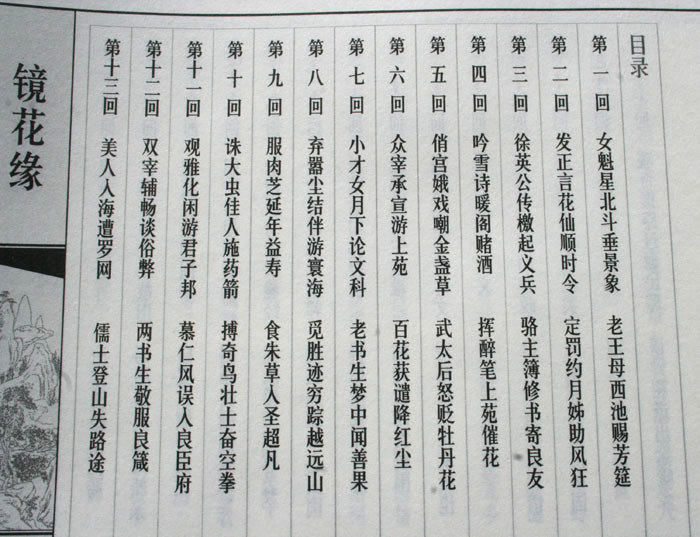 目录
第一回 女魁星北斗垂景象 老王母西池赐芳筵
第二回 发正言花仙顺时令 定罚约月姊助风狂
第三回 徐英公传檄起义兵 骆主簿修书寄良友
第四回 吟雪诗暖阁赌酒 挥醉笔上苑催花
第五回 俏宫娥戏嘲金盏草 武太后怒贬牡丹花
第六回 众宰承宣游上苑 百花获谴降红尘
第七回 小才女月下论文科 老书生梦中闻善果
第八回 弃嚣尘结伴游寰海 觅胜迹穷踪越远山
第九回 服肉芝延年益寿 食朱草入圣超凡
第十回 诛大虫佳人施药箭 搏奇鸟壮士奋空拳
第十一回 观雅化闲游君子邦 慕仁风误入良臣府
第十二回 双宰辅畅谈俗弊 两书生敬服良箴
第十三回 美人入海遭罗网 儒士登山失路途
镜花缘